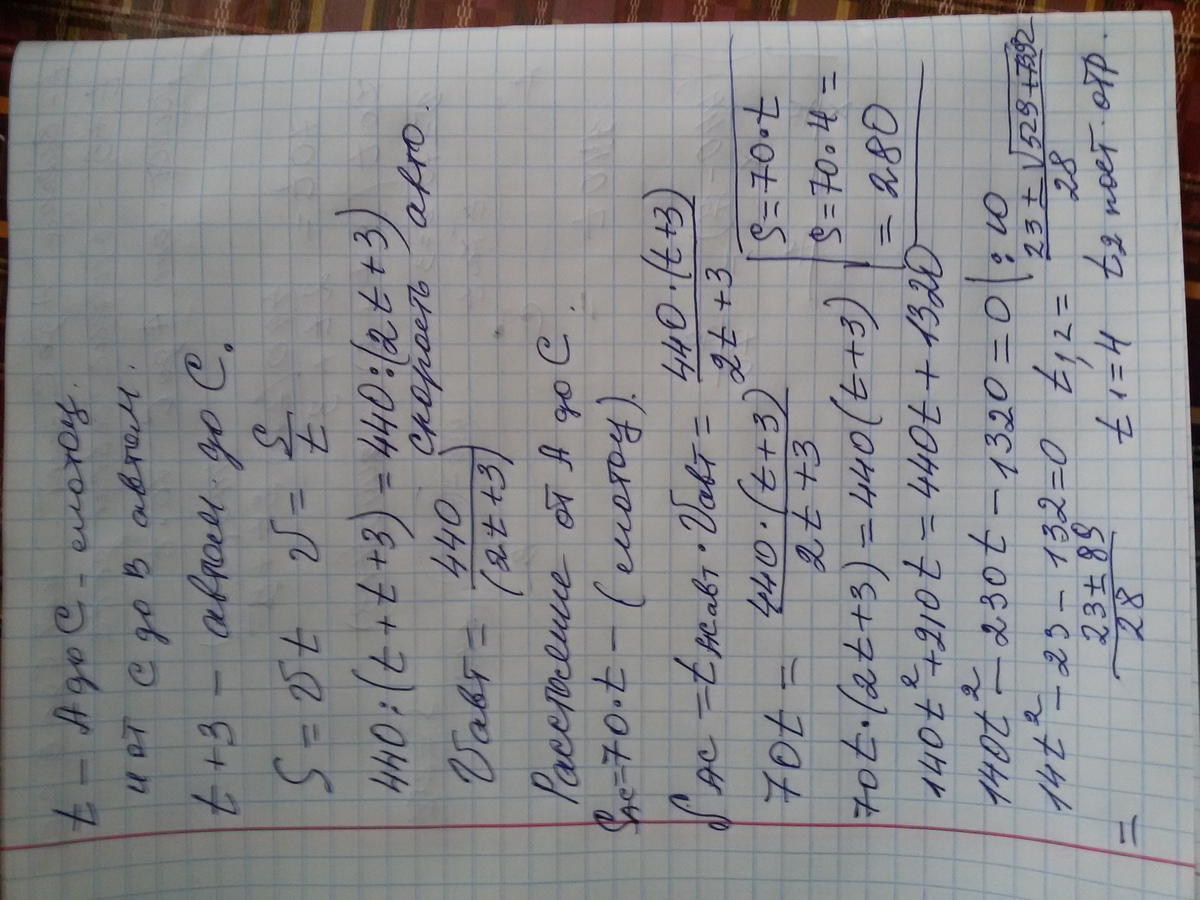 t – А до С – мотоц.
и от С до В автом.
t + 3 – автом. до С.
S = υt υ = S/t
440 : (t + t + 3) = 440 : (2t + 3)
υавт = 440/(2t + 3) скорость авто.
Расстояние от А до С.
SАС = 70·t – (мотоц).
SАС = tАСавт · υавт = 440·(t+3)/2t+3
70t = 440·(t+3)/2t+3
70t·(2t+3) = 440(t+3)
140t² + 210t = 440t + 1320
140t² – 230t – 1320 = 0 | : 10
14t² – 23 – 132 = 0 t1,2 = 23 ± √529+7392/28
= 23 ± 89/28 t1 = 4 t2 пост. отр.
S = 70·t
S = 70·4 =
= 280